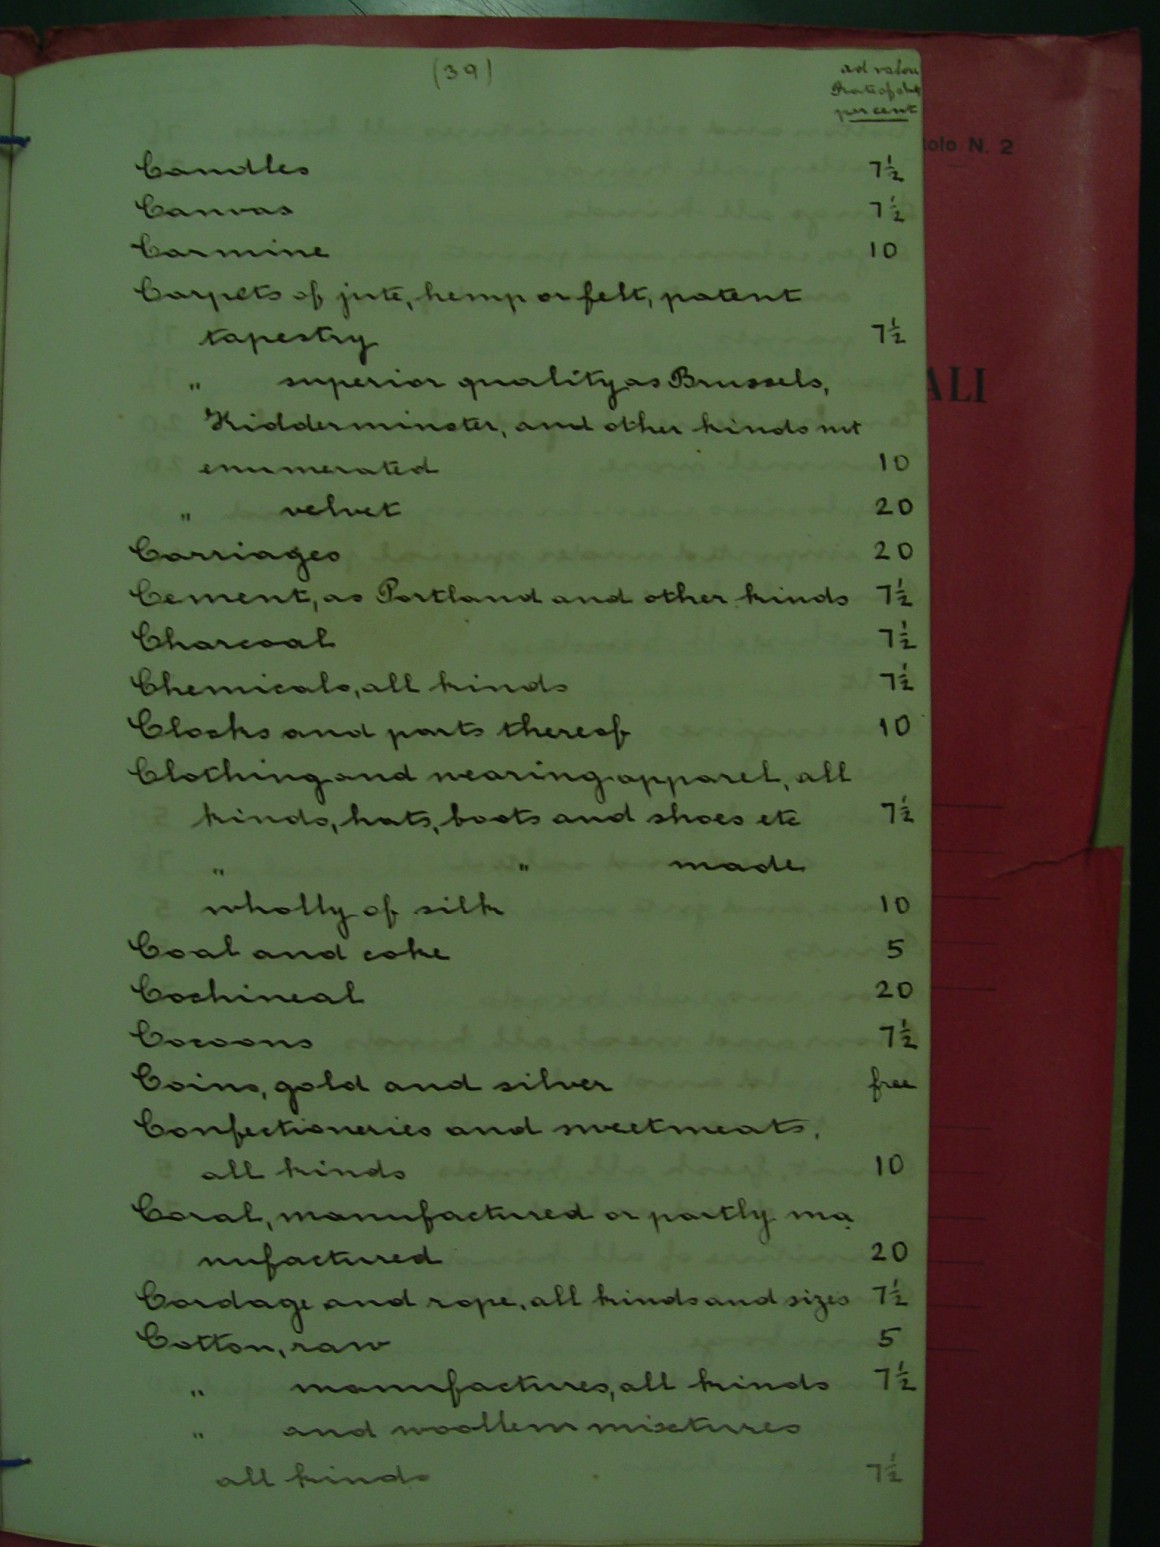 (39)
ad valou
Rate of dut
per cent
tolo N. 2
ALI
Candles 7½
Canvas 7½
Carmine 10
Carpets of jute, hemp or felt, patent
tapestry 7½
" superior quality as Brussels,
Kidderminster, and other kinds not
enumerated 10
" velvet 20
Carriages 20
Cement, as Portland and other kinds 7½
Charcoal 7½
Chemicals, all kinds 7½
Clocks and parts thereof 10
Clothing and wearing apparel, all
kinds, hats, boots and shoes etc 7½
" " made
wholly of silk 10
Coal and coke 5
Cochineal 20
Cocoons 7½
Coins, gold and silver free
Confectioneries and sweetmeats,
all kinds 10
Coral, manufactured or partly ma
nufactured 20
Cordage and rope, all kinds and sizes 7½
Cotton, raw 5
" manufactures, all kinds 7½
" and woollem mixtures
all kinds 7½